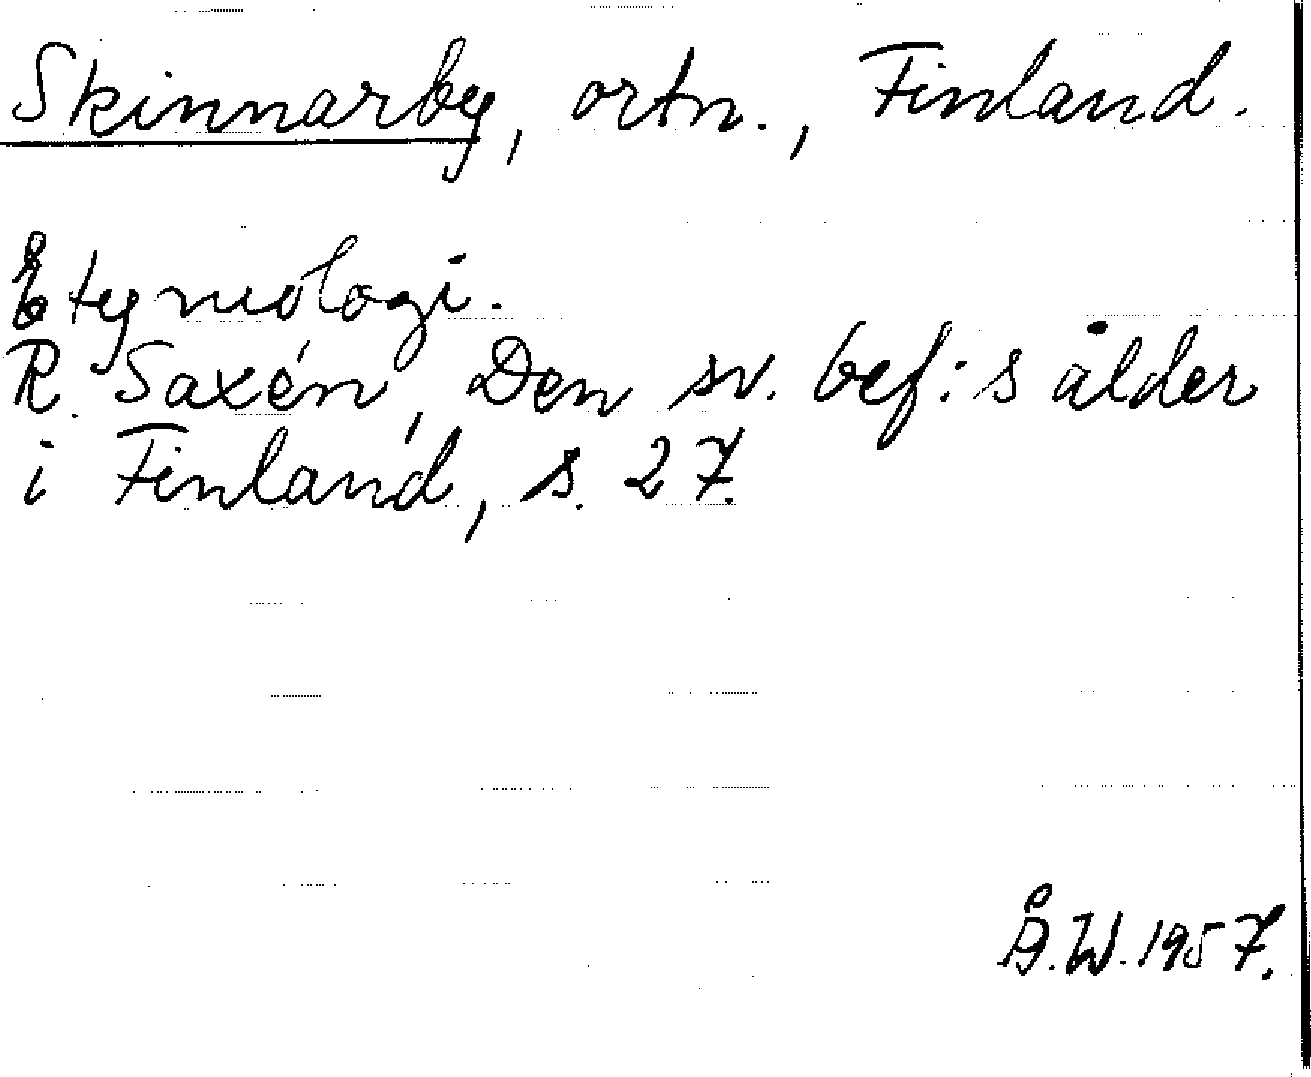 Skinnarby, ortn., Finland.
Etymologi.
R. Saxén, Den sv. bef:s ålder
i Finland, s. 27.
Å.W. 1957.